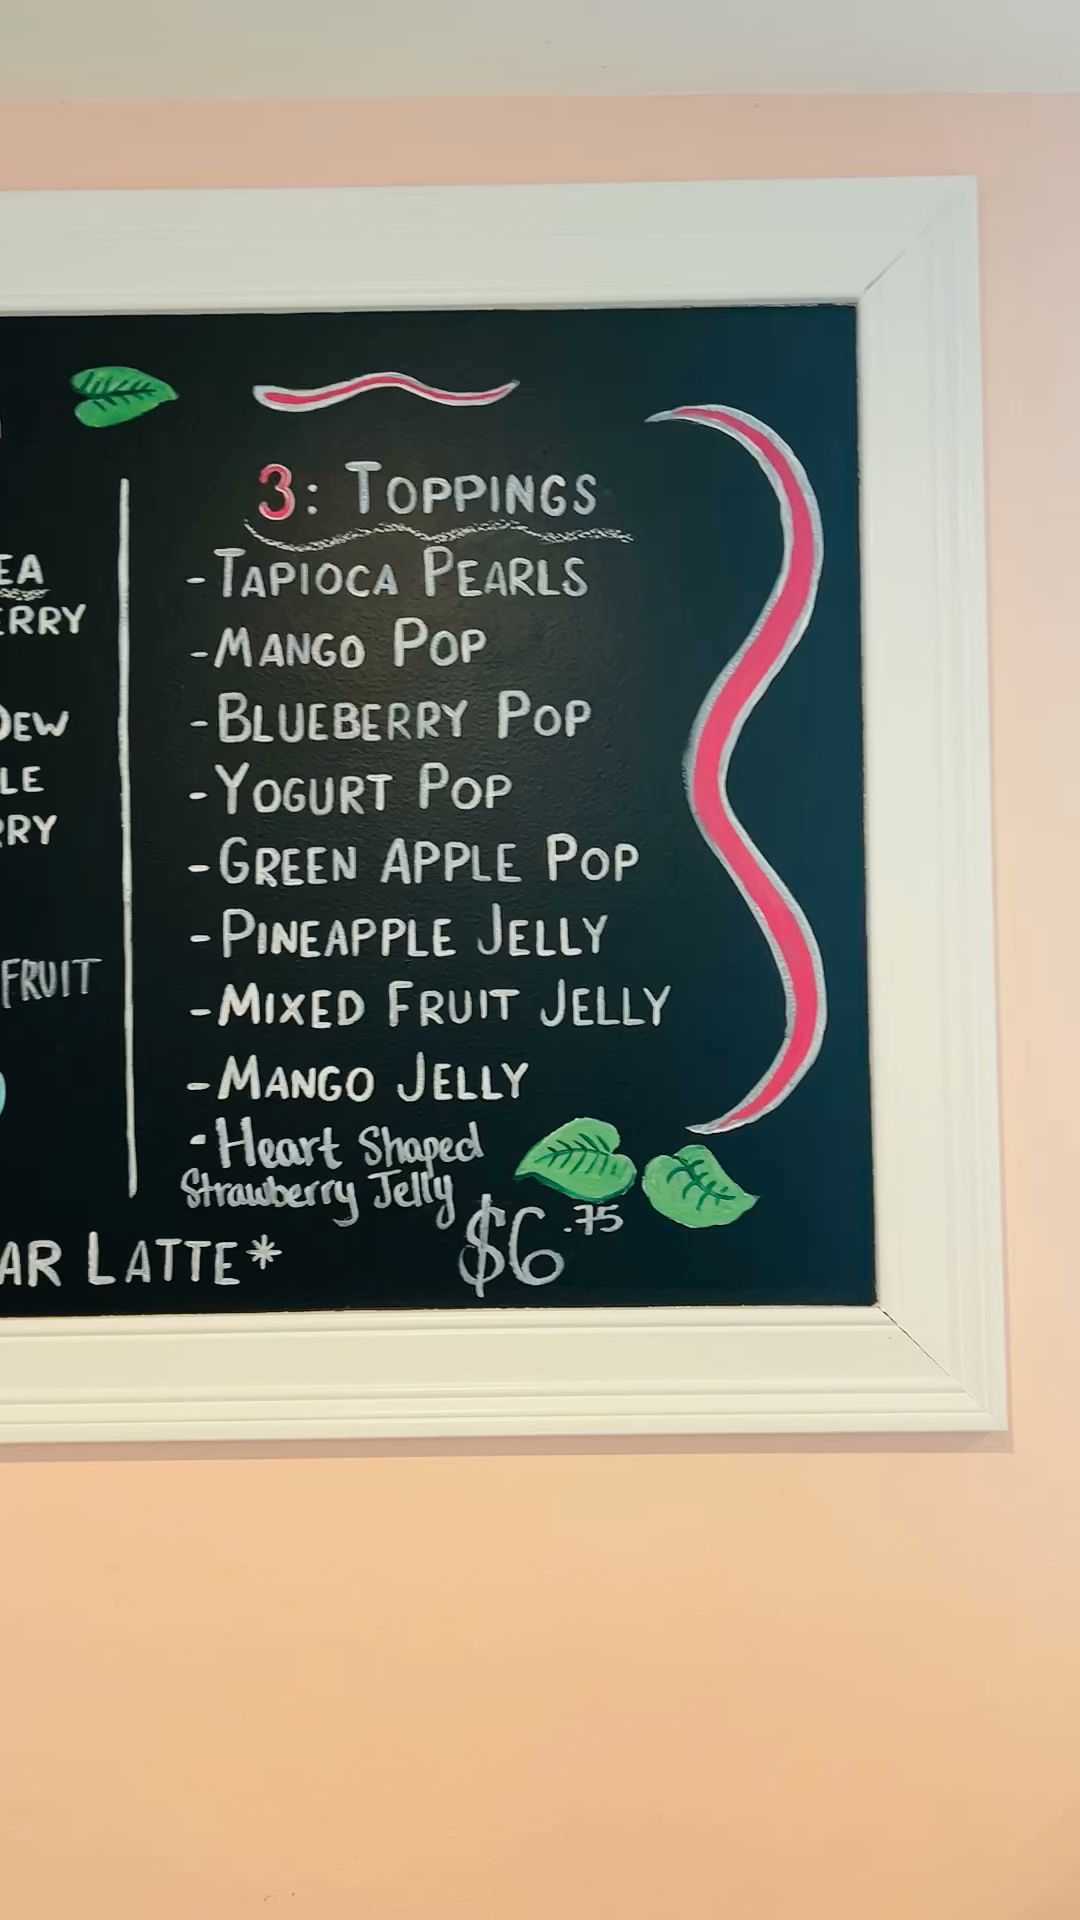 3: TOPPINGS
- TAPIOCA PEARLS
- MANGO POP
- BLUEBERRY POP
- YOGURT POP
- GREEN APPLE POP
- PINEAPPLE JELLY
- MIXED FRUIT JELLY
- MANGO JELLY
- Heart Shaped
Strawberry Jelly
$6.75
EA
ERRY
DEW
LE
RRY
FRUIT
AR LATTE*